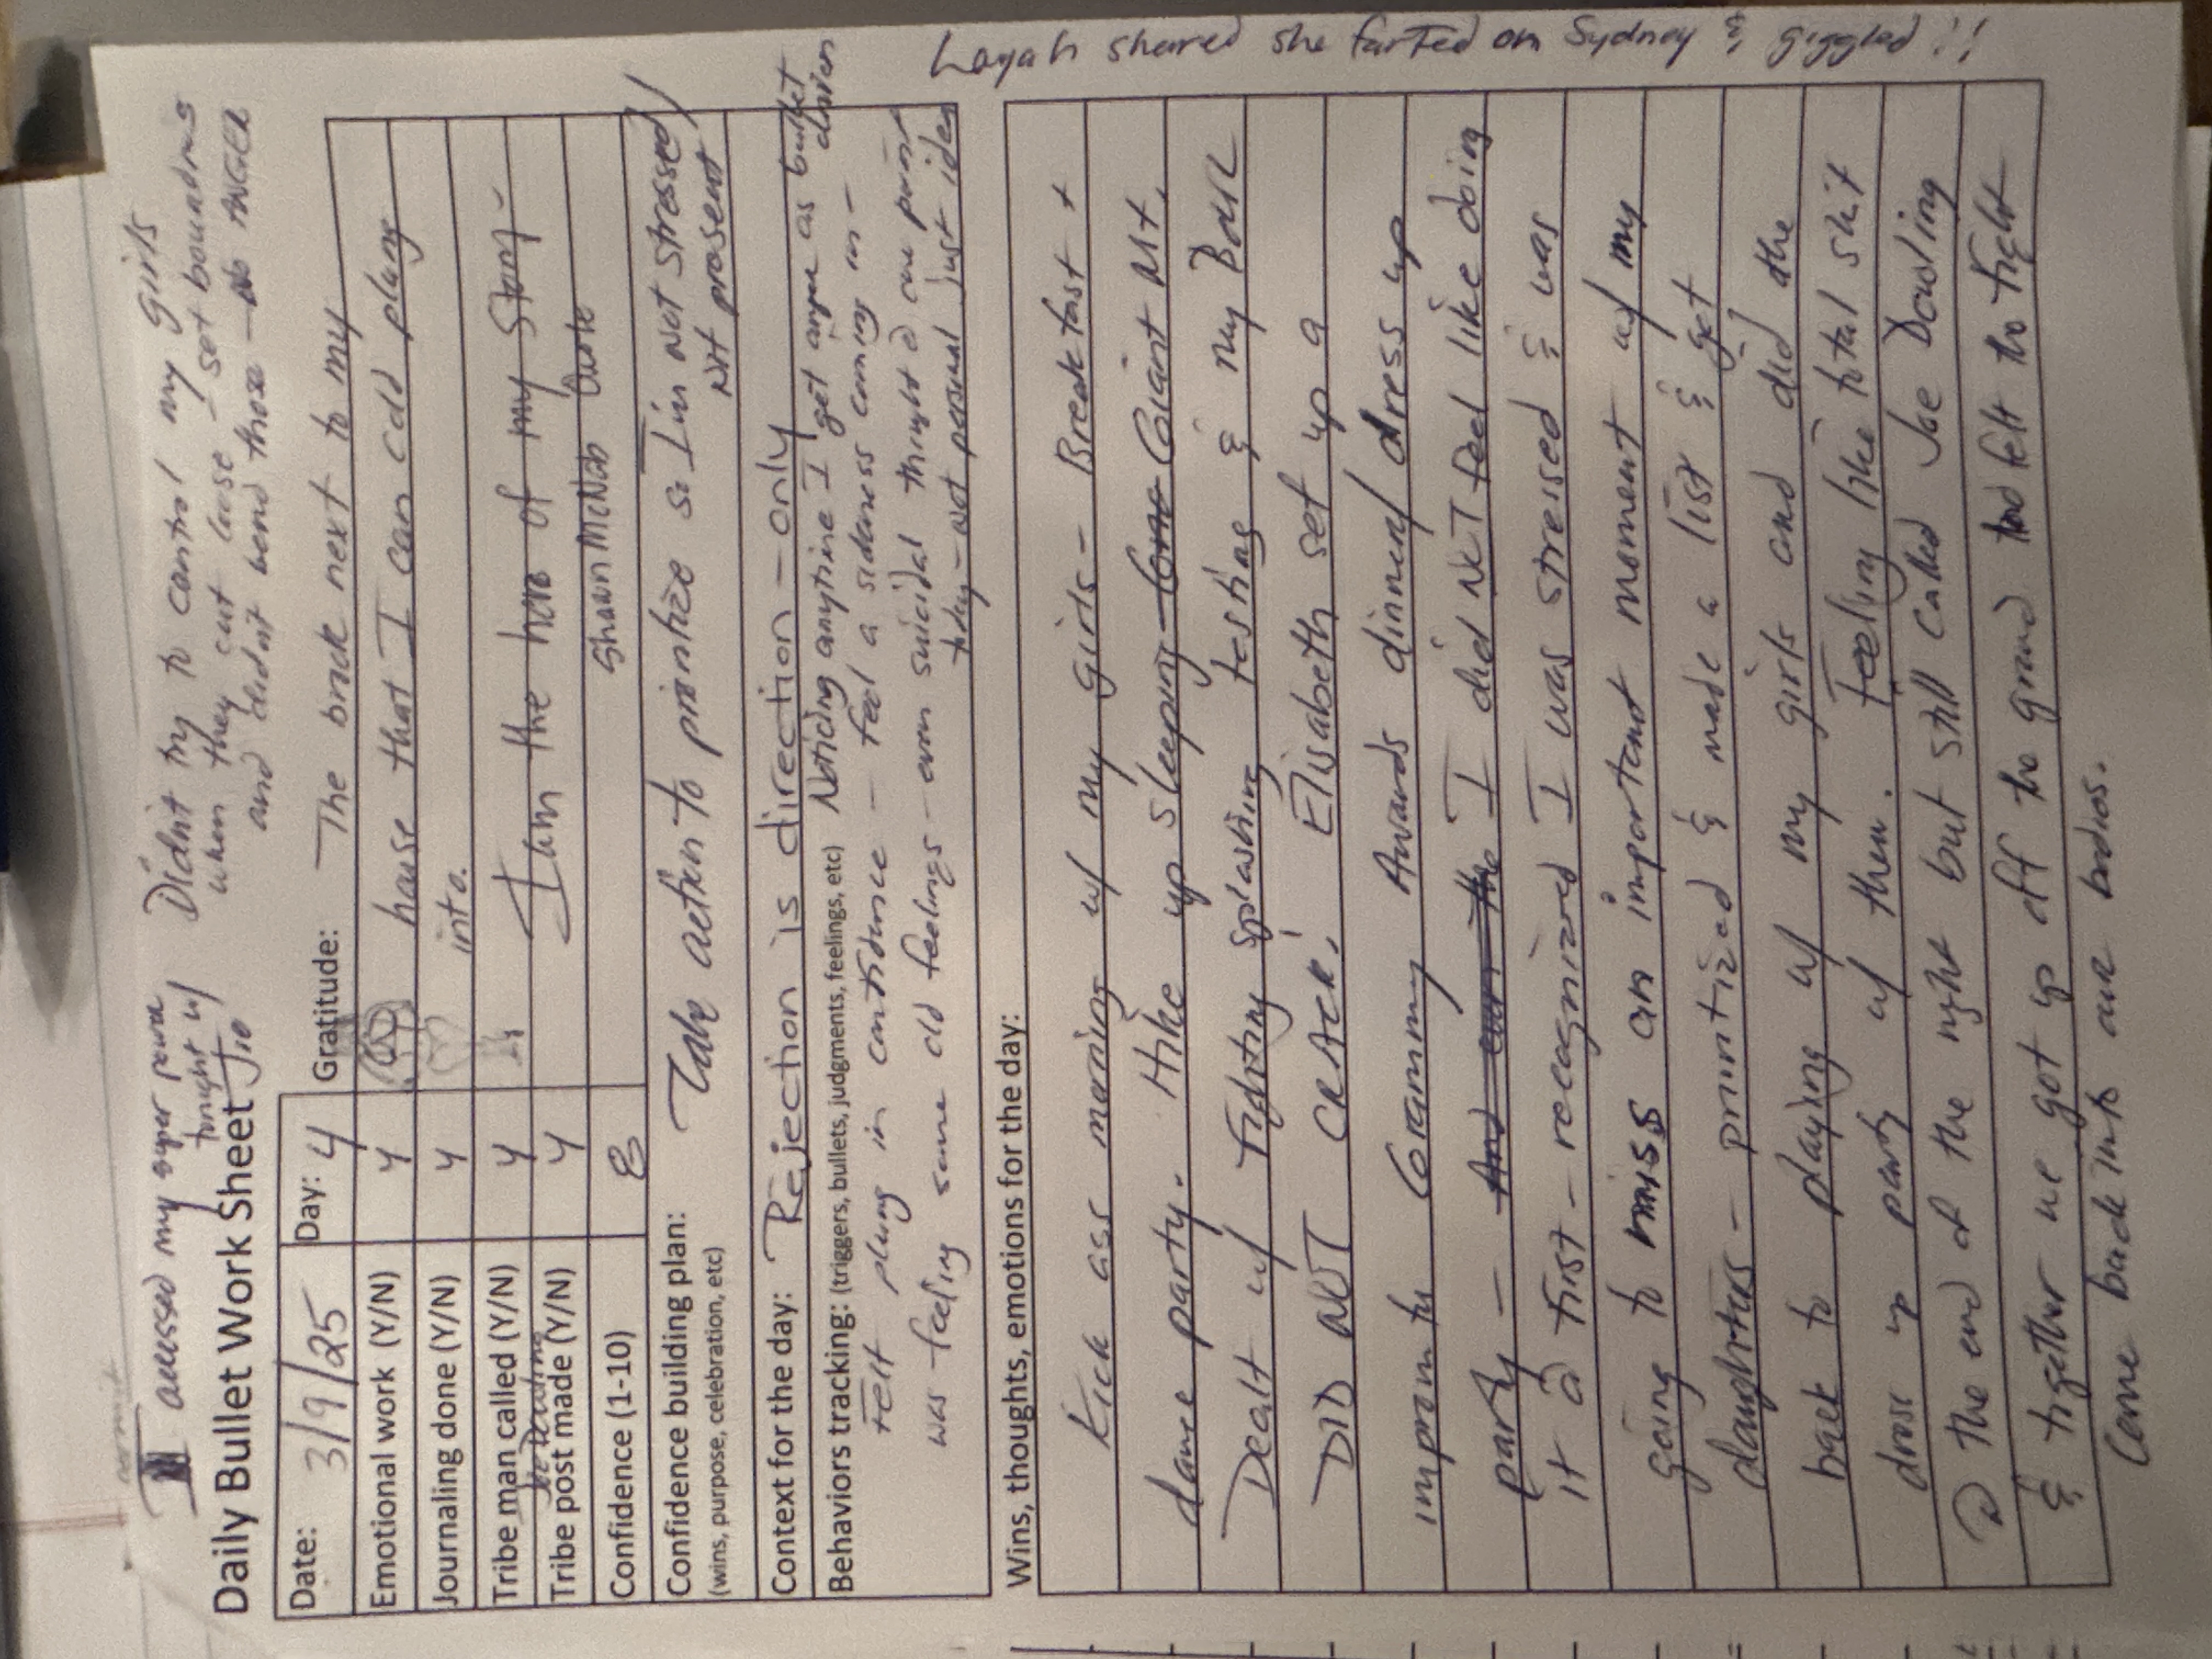 I accessed my super power tonight w/ Jio
Didnt try to control my girls
when they cut loose - set boundries
and didnt bend those - no ANGER
Daily Bullet Work Sheet
Date: 3/9/25 Day: 4
Gratitude: The brick next to my
house that I can cold plunge
into.
I am the hero of my story -
Shawn McNab Quote
Emotional work (Y/N) Y
Journaling done (Y/N) Y
Tribe man called (Y/N) Y
Joe Dowling
Tribe post made (Y/N) Y
Confidence (1-10) 8
Confidence building plan: Take action to prioritize so I'm not stressed/
(wins, purpose, celebration, etc) Not present
Context for the day: Rejection is direction - only
Behaviors tracking: (triggers, bullets, judgments, feelings, etc) Noticing anytime I get anger as bullet
Felt plung in confidence - feel a sideness coming in -
was feeling some old feelings - even suicidal thright @ one point
today - not personal just idea
Wins, thoughts, emotions for the day:
Kick ass morning w/ my girls - Breakfast +
dance party. Hike up sleeping Giant Mt.
Dealt w/ Fighting splashing testing & my Body
DID NOT CRACK! Elisabeth set up a
impromtu Grammy Awards dinner/ dress up
party - I did NOT feel like doing
it @ first - recognized I was stressed & was
going to miss an important moment w/ my
daughters - prioritized & made a list & get
back to playing w/ my girls and did the
dress up party w/ them. Feeling like total shit
@ the end of the night but still called Joe Dowling
& together we got up off the ground and felt the fight
Come back into our bodies.
Layah shared she farted on Sydney & giggled!!